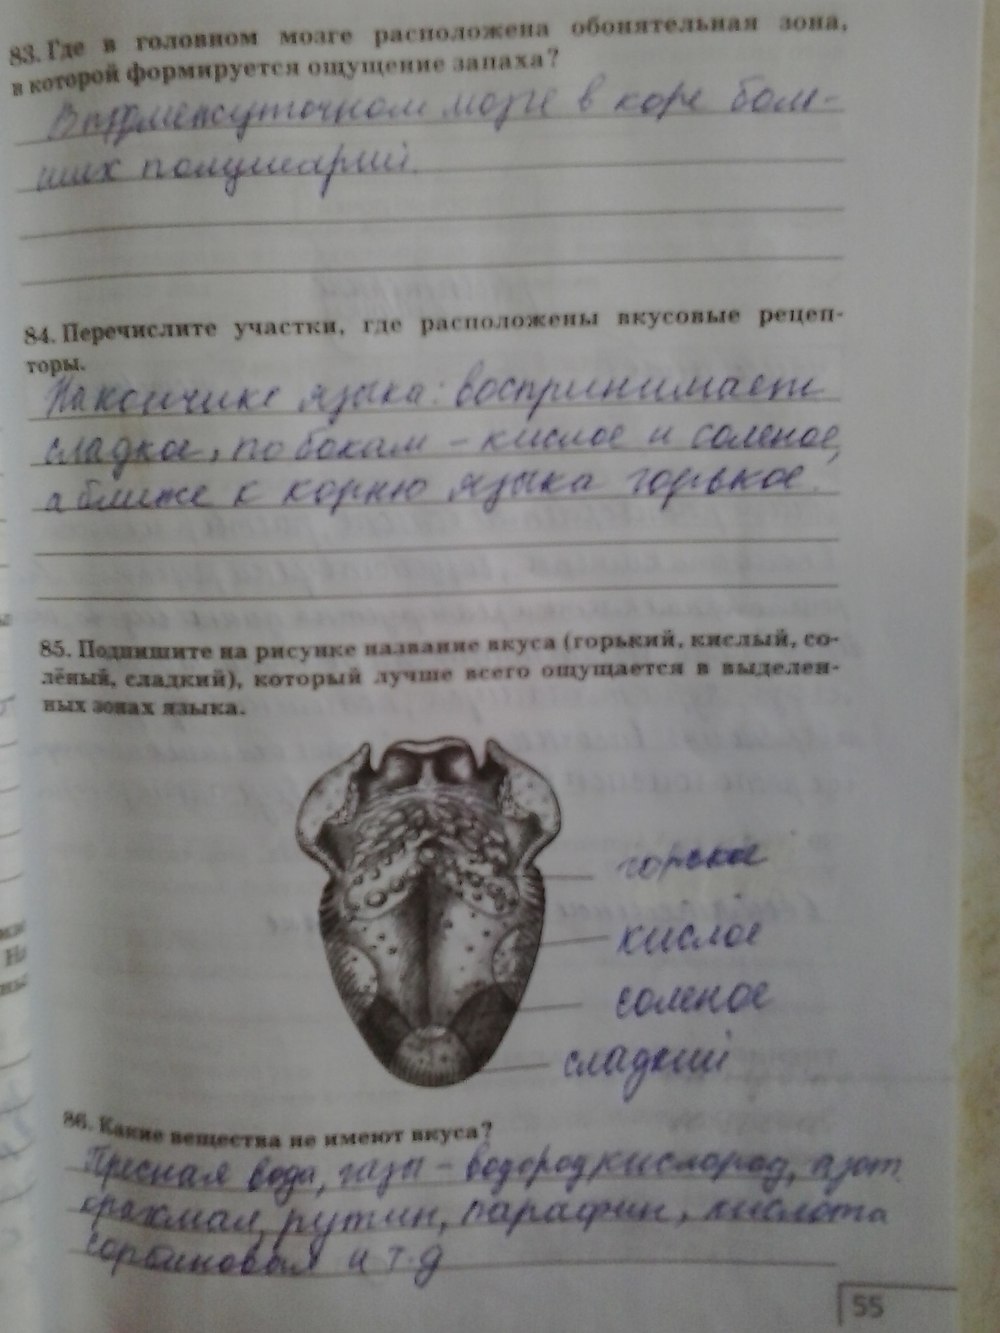 83. Где в головном мозге расположена обонятельная зона,
в которой формируется ощущение запаха?
В промежуточном мозге в коре боль-
ших полушарий.
84. Перечислите участки, где расположены вкусовые рецеп-
торы.
На кончике языка: воспринимает
сладкое, по бокам - кислое и соленое,
а ближе к корню языка горькое.
85. Подпишите на рисунке название вкуса (горький, кислый, со-
лёный, сладкий), который лучше всего ощущается в выделен-
ных зонах языка.
горькое
кислое
соленое
сладкий
86. Какие вещества не имеют вкуса?
Пресная вода, газы - водород, кислород, азот,
крахмал, рутин, парафин, кислота
сорбиновая и т.д
55